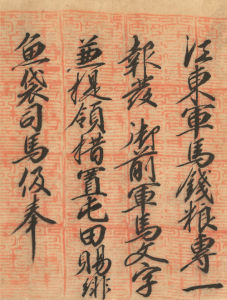 江東軍馬錢粮專一
報發 御前軍馬文字
兼提領措置屯田賜緋
魚袋司馬伋奉